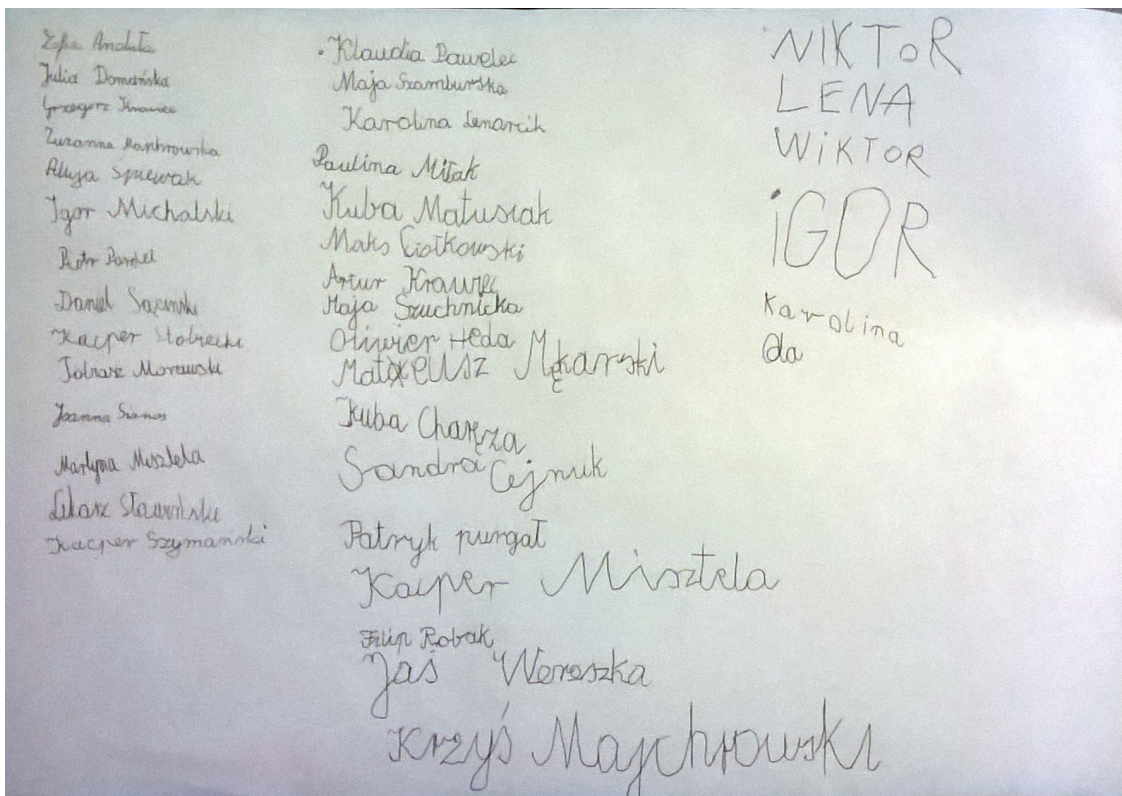 Zofia Anduła
Julia Domańska
Grzegorz Krawiec
Zuzanna Majchrowska
Alicja Śpiewak
Igor Michalski
Piotr
Daniel
Kacper
Tobiasz Morawski
Joanna
Martyna Misztela
Łukasz Sławiński
Kacper Szymański
Klaudia Pawelec
Maja Szamburska
Karolina Lenarcik
Paulina Miłak
Kuba Matusiak
Maks Ciołkowski
Artur Krawiec
Maja Szuchnicka
Oliwier Heda
Mateusz Mękarski
Kuba Charęza
Sandra Cejnuk
Patryk purgał
Kacper Misztela
Filip Robak
Jaś Wereszka
Krzyś Majchrowski
NIKTOR
LENA
WiKTOR
iGOR
Karolina
Ola